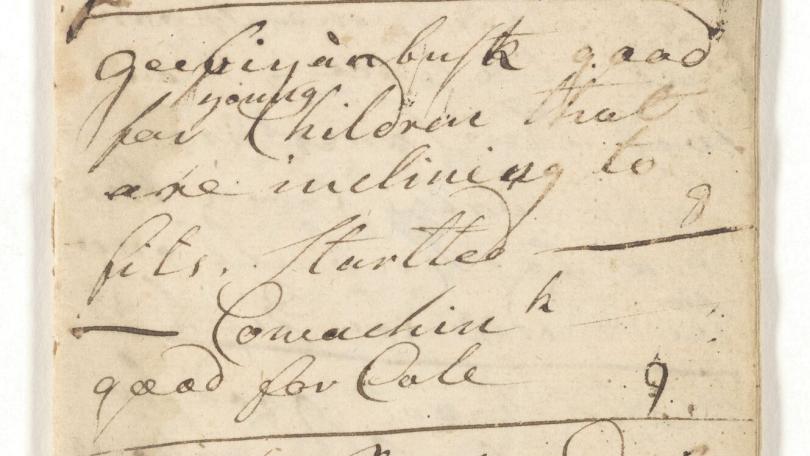 geesiyàn busk good
young
for Children that
are inclining to
fits. Startted 8
Comachin k
good for Cole 9.